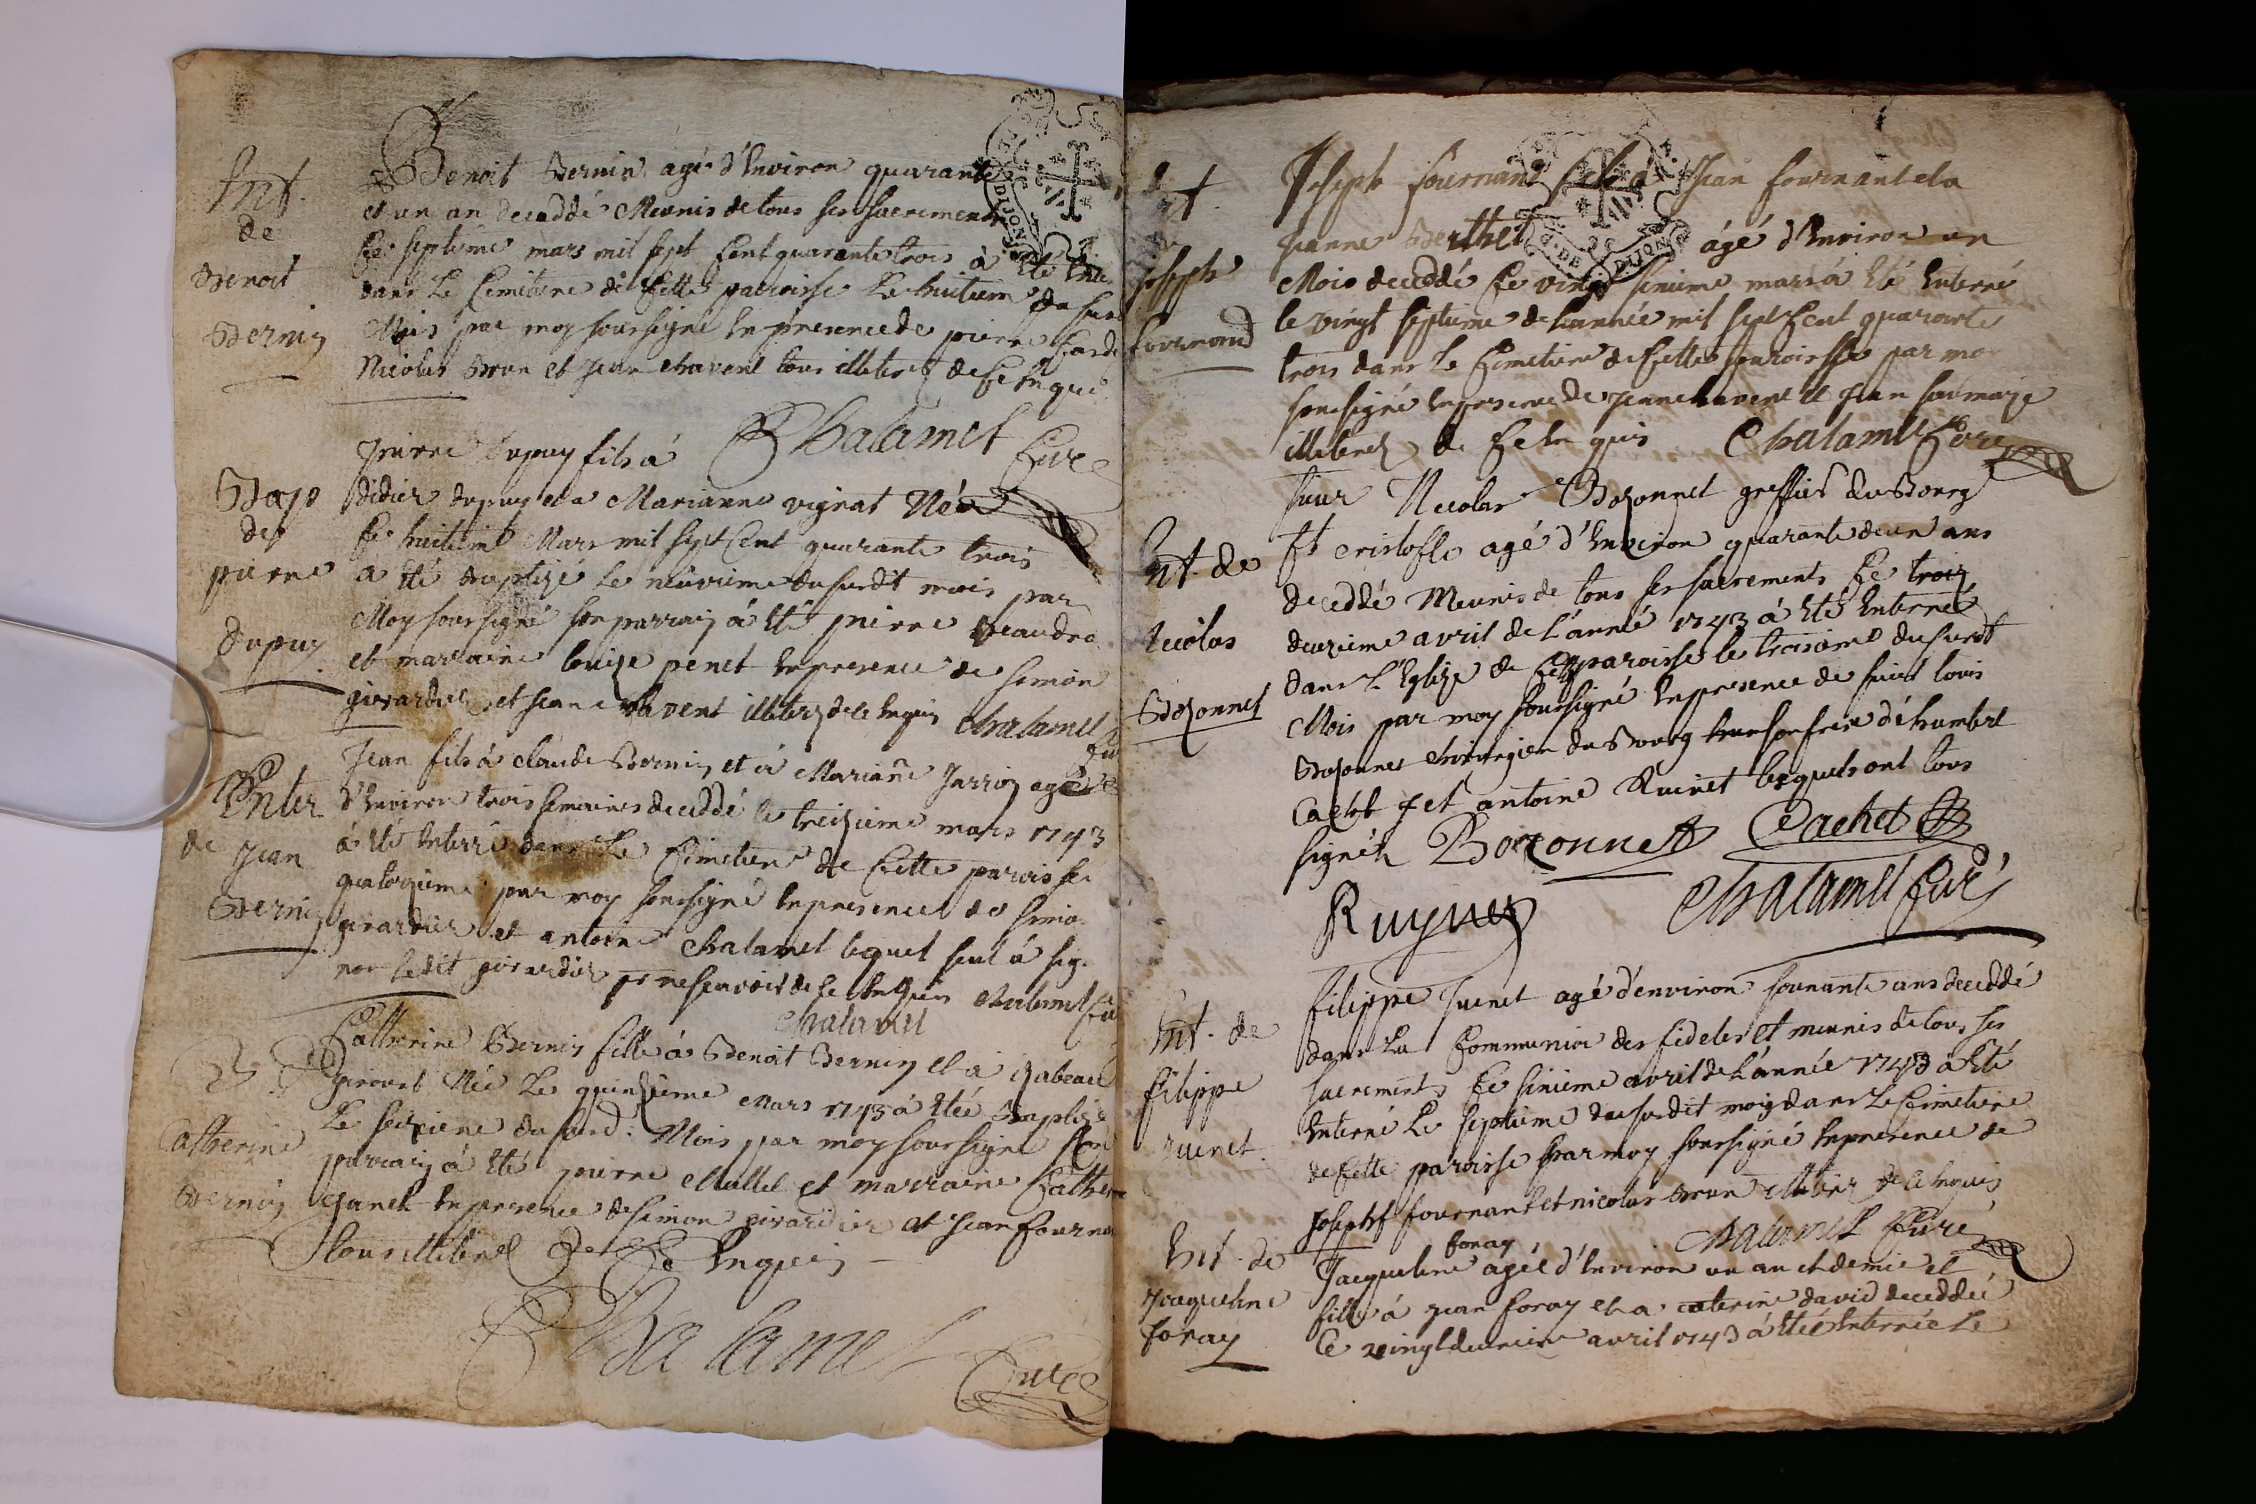 Int.
de
Benoit
Bernin
Benoit Bernin agé d'Environ quarante
et un an decoddé Meunis de tous ses sacrements
Ce septieme mars mil sept Cent quarante trois à Eté
dans Le Cemitiere de Cette paroisse Le huitiem du sus
Mois par moy soussigné En presence de pierre
Nicolas Brun et Jean chavent tous illiteres de Ce Enquis
Chalamet Curé
Bap
de
pierre
dupuy
pierre dupuy fils á
didier dupuy et a Marianne vignat Née
Ce huitieme Mars mil sept Cent quarante trois
a Eté Baptizé Le neuvieme du susdit mois par
Moy soussigné son parrain á Eté pierre
et marraine louize penet En presence de simon
girardier et Jean chavent illiterez de Ce Enquis Chalamet
Curé
Enter
de Jean
Bernin
Jean fils á claude Bernin et á Marianne Jarrin agé
d'Environ trois semaines decoddé le treizieme mars 1743
á Eté Enterré dans Le Cimetiere de Cette paroisse
quatorzieme par moy soussigné En presence de simon
girardier et antoine Chalamet lequel seul á sig.
non ledit girardier pr ne scavoir de Ce Enquis Chalamet Cu
Chalamet
Catherine
Bernin
Catherine Bernin fille á Benoit Bernin et á izabeau
girout Née Le quinzieme Mars 1743 á Etée Baptisée
Le seizieme du susd: Mois par moy soussigné son
parrain á Eté pierre Mullet et marraine Catherine
En presence de simon girardier et Jean fournan
Tous illiterez de Ce Enquis
Chalamet
Curé
Int.
Joseph
fournand
Joseph fournand fils á Jean fournant et a
Jeanne Berthet agé d'Environ un
Mois decoddé Ce vingt sixieme mars á Eté Enterré
le vingt septieme de L'année mil sept Cent quarante
trois dans Le Cimetiere de Cette paroisse par moy
soussigné En presence de Jean chavent et Jean
illiterez de Ce Enquis Chalamet Curé
Int. de
Nicolas
Bozonnet
sieur Nicolas Bozonnet greffier du Bourg
St cristofle agé d'Environ quarante deux ans
decoddé Meunis de tous ses sacrements Ce trois
deuxieme avril de L'année 1743 á Eté Enterré
dans L'Eglize de Cette paroisse le troisieme du susdt
Mois par moy soussigné En presence de sieur louis
Bozonnet chirurgien du Bourg son frere d'humbert
Cachet et antoine Ruinet lesquels ont tous
signéz Bozonnet Cachet
Ruynet Chalamet Curé
Int. de
filippe
Juenet
filippe Juenet agé d'environ soixante ans decoddé
dans La Communion des fideles et meunis de tous ses
sacrements Ce sixieme avril de L'année 1743 á Eté
Enterré Le septieme du susdit mois dans Le Cimetiere
de Cette paroisse par moy soussigné En presence de
Joseph fournant et nicolas Brun illiterez de Ce Enquis
Chalamet Curé
Int. de
Jaqueline
foray
foray
Jacqueline agée d'Environ un an et demie et
fille á Jean foray et a caterine david decoddée
Ce vingt deuxieme avril 1743 á Etée Enterrée Le